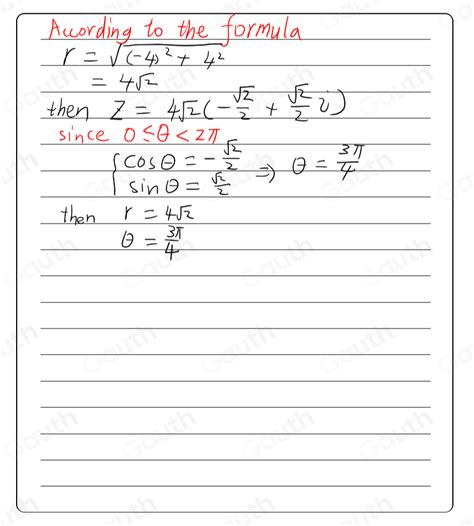 According to the formula
r = √(-4)² + 4²
= 4√2
then Z = 4√2(-√2/2 + √2/2 i)
since 0 ≤ θ < 2π
{cosθ = -√2/2
sinθ = √2/2 ⇒ θ = 3π/4
then r = 4√2
θ = 3π/4
Gauth